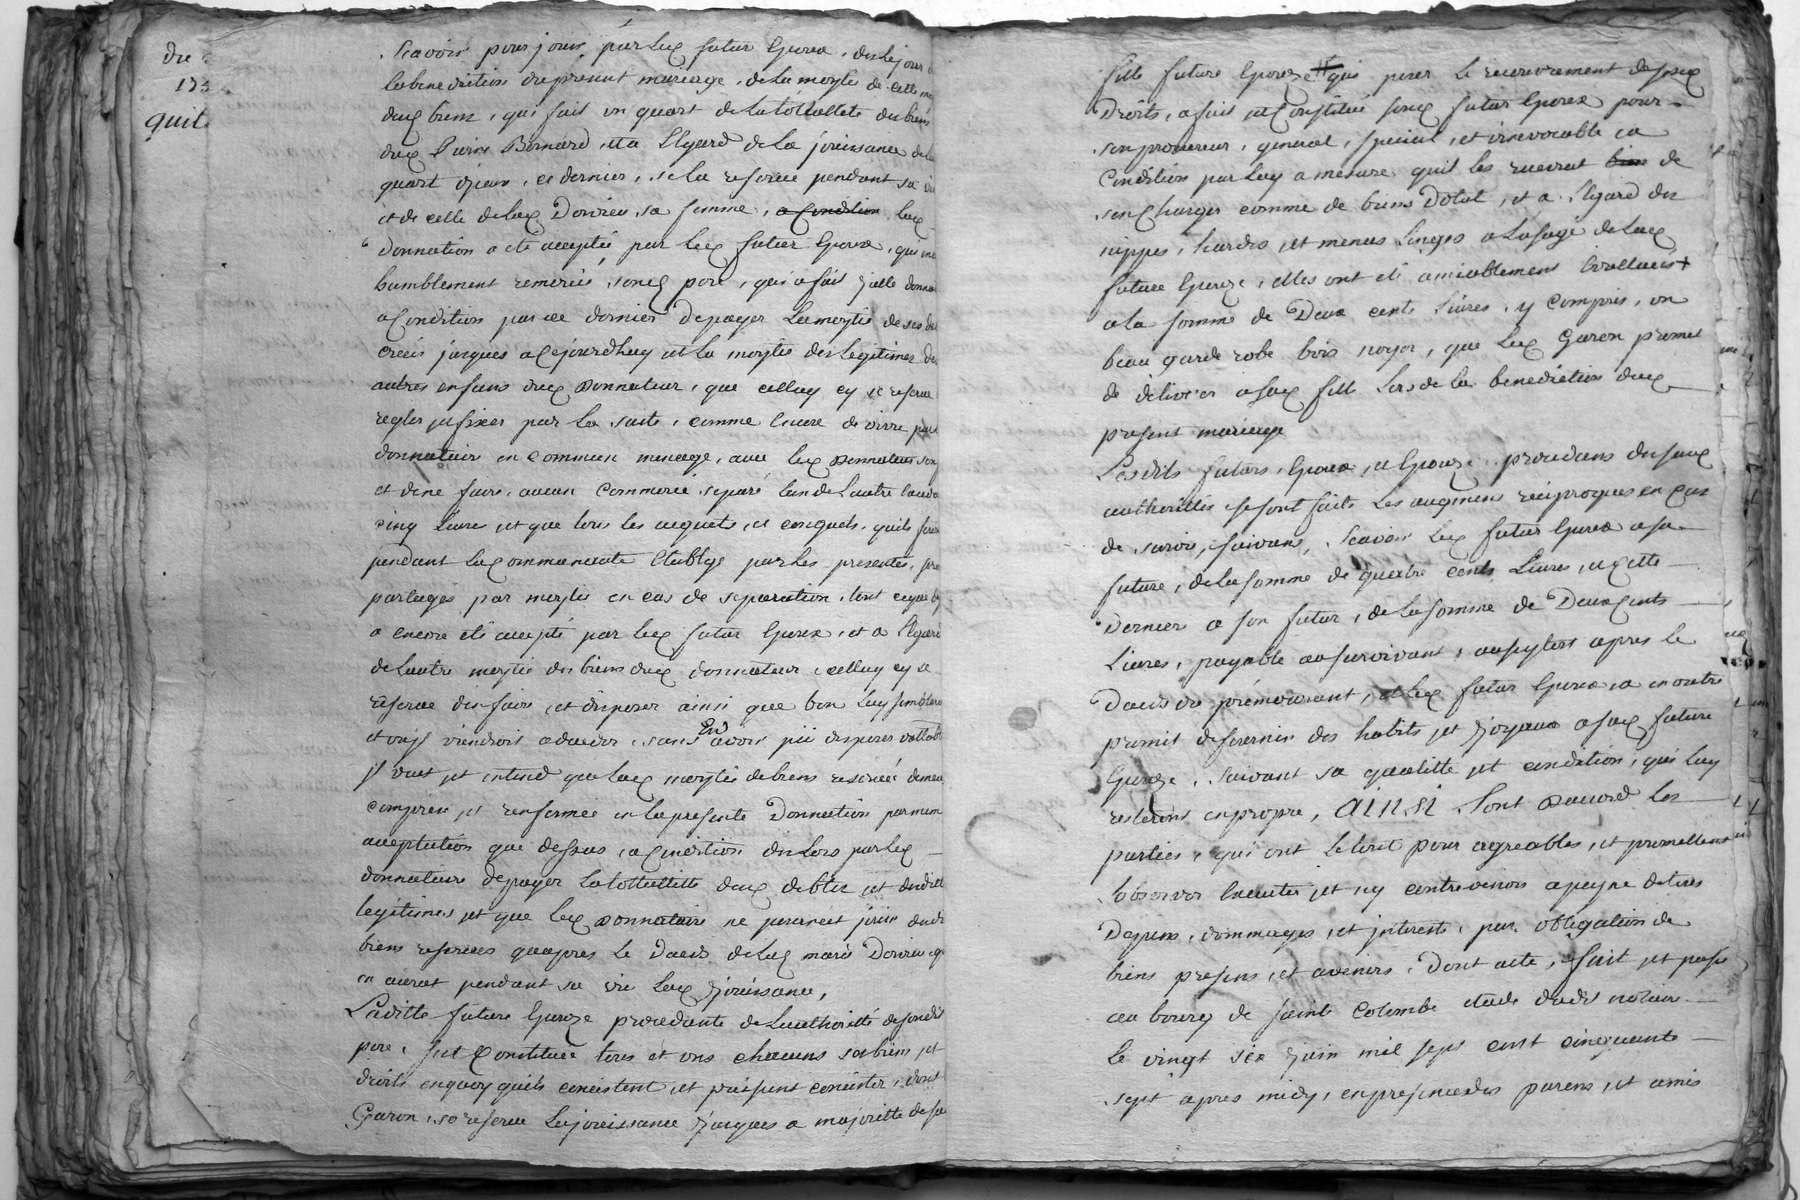 du
175
quit
Scavoir pour jouir par led futur Epoux, du le jour
la benediction du present mariage, de la moytie de cette
dud biens, qui fait un quart de la tottallete du biens
dud Pierre Bernard, et a l'Egard de la jouissance
quart d'iceux, ce dernier, se la reserve pendant sa vie
et de celle de lad Dovrieu, sa femme, a Condition, lad
donnation a ete acceptée par led futur Epoux, qui en a
humblement remercié, sond pere, qui a fait jcelle donna
a Condition par ce dernier de payer la moytie de ses de
creés jusques a Cejourdhuy et la moytie des legitimes de
autres enfans dud donnateur, que celluy cy se reserve
regler et fixer par la suite, comme encore de vivre
donnataire en commun menage, avec led donnateur son
et de ne faire, aucun Commerce separé l'un de l'autre
cinq Livres et que tous les acquets, et conquets, quils feront
pendant la Communauté Etablye par les presentes, ser
partagés par moytie en cas de separation, tout ce que
a encore été accepté par led futur Epoux, et a l'Egard
de l'autre moytie des biens dud donnateur, celluy cy a
reservé d'en faire, et disposer ainsi que bon luy semblera
et ou jl viendroit a deceder, sans En avoir pû disposer vallab
jl veut et entend que lad moytie de biens reservée demeu
comprise et renfermée en la presente Donnation par mem
acceptation que dessus, a Condition du lors par led
donnataire de payer la tottallitté dud debtes et dudittes
legitimes et que led donnataire ne pourroit jouir dud
biens reservés qu'apres le Deces de lad marie Dovrieu q
en aurat pendant sa vie lad jouissance,
Laditte future Epouze procedante de l'authoritté de sondit
pere, s'est Constituée tous et uns chacuns ses biens et
droits en quoy quils concistent, et puissent concister, dont
Garon, se reserve la jouissance jusques a majoritte de sa
fille future Epouze # qui pour le recouvrement desd
Droits, a fait et Constitué sond futur Epoux pour
son procureur, general, special, et irrevocable a
Condition par luy a mesure quil les recevrat bien de
s'en Charger comme de biens Dotal, et a l'Egard des
nippes, hardes, et menus Linges a l'usage de lad
future Epouze, elles ont été amiablement Evalluées +
a la somme de Deux cents Livres, y Compris, un
beau garde robe bois noyer, que led Garon promet
de delivrer a sad fille Lors de la benediction dud
present mariage
Lesdits futurs, Epoux, et Epouze, procedans du susd
authorittés se sont faits les augmens reciproques en cas
de survie, suivans, Scavoir led futur Epoux a sa
future, de la somme de quatre cents Livres, et cette
Derniere a son futur, de la somme de Deux Cents
Livres, payable au survivant, aussytost apres le
Deces du premourant, et led futur Epoux a en outre
promis de fournir des habits et joyaux a sad future
Epouze, suivant sa qualitte et condition, qui luy
resteront en propre, ainsi Sont d'accord les
parties, qui ont le tout pour agreables, et promettent
l'observer Executer et n'y contrevenir a peyne de tous
Depens, dommages, et jnterests, par obligation de
biens presens, et avenirs, Dont acte, fait et passé
au bourg de Sainte Colombe etude dudit notaire
le vingt six juin mil sept cent cinquante
sept apres midy, en presence des parens, et amis